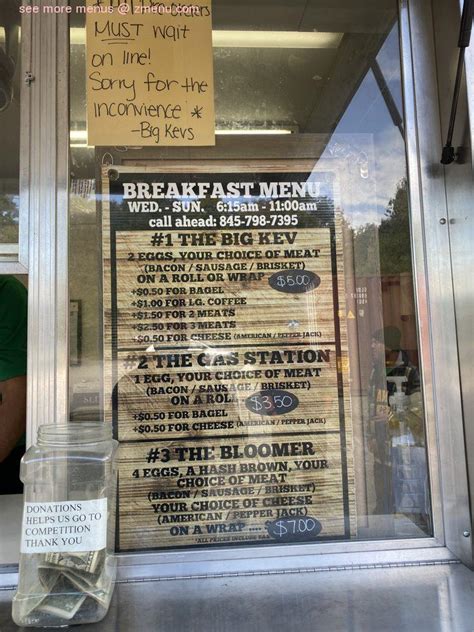 see more menus @ zmenu.com
orders
MUST wait
on line!
Sorry for the
inconvience *
-Big Kevs
BREAKFAST MENU
WED. - SUN. 6:15am - 11:00am
call ahead: 845-798-7395
#1 THE BIG KEV
2 EGGS, YOUR CHOICE OF MEAT
(BACON / SAUSAGE / BRISKET)
ON A ROLL OR WRAP $5.00
+$0.50 FOR BAGEL
+$1.00 FOR LG. COFFEE
+$1.50 FOR 2 MEATS
+$2.50 FOR 3 MEATS
+$0.50 FOR CHEESE (AMERICAN / PEPPER JACK)
#2 THE GAS STATION
1 EGG, YOUR CHOICE OF MEAT
(BACON / SAUSAGE / BRISKET)
ON A ROLL $3.50
+$0.50 FOR BAGEL
+$0.50 FOR CHEESE (AMERICAN / PEPPER JACK)
#3 THE BLOOMER
4 EGGS, A HASH BROWN, YOUR
CHOICE OF MEAT
(BACON / SAUSAGE / BRISKET)
YOUR CHOICE OF CHEESE
(AMERICAN / PEPPER JACK)
ON A WRAP .... $7.00
*ALL PRICES INCLUDE
DONATIONS
HELPS US GO TO
COMPETITION
THANK YOU